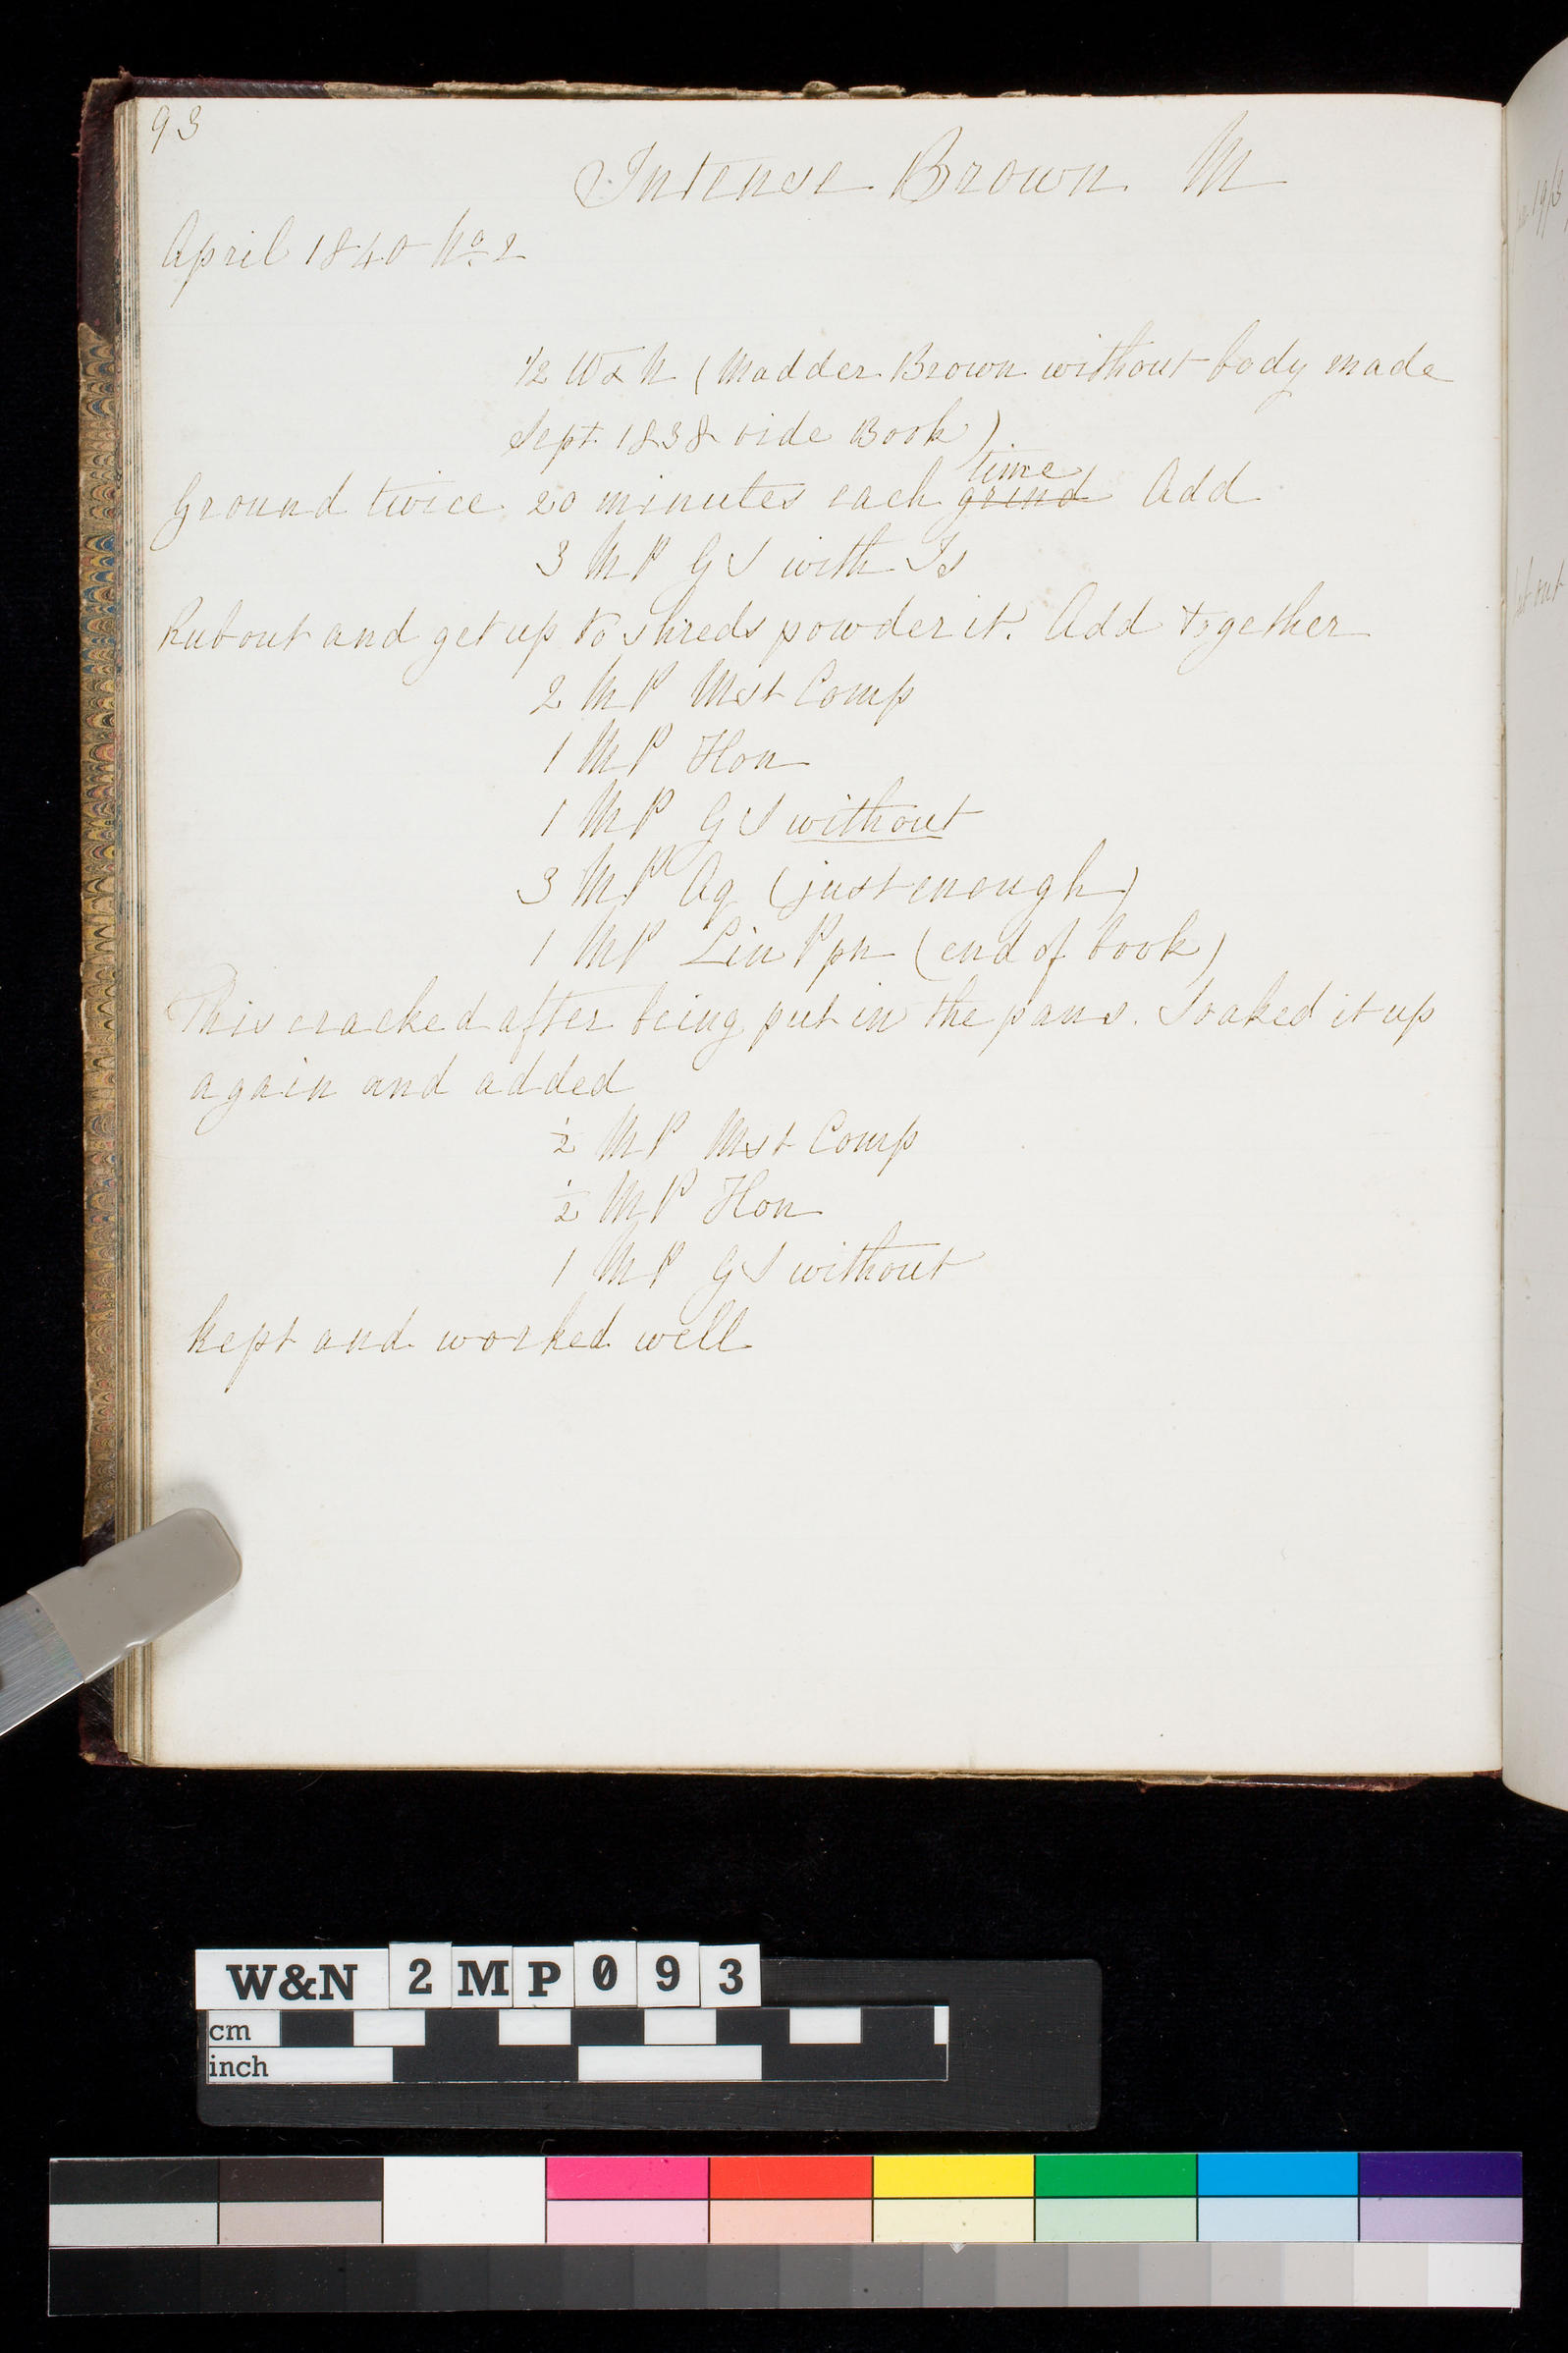 93
Intense Brown M
April 1840 No. 2
1/2 W & N (Madder Brown without body made
Sept. 1838 vide Book)
time
Ground twice 20 minutes each grind Add
3 MP GS with Is
Rub out and get up to shreds powder it. Add together
2 MP Mst Comp
1 MP Hon
1 MP GS without
3 MP Aq (just enough)
1 MP Lin Ppn (end of book)
This cracked after being put in the pans. Soaked it up
again and added
1/2 MP Mst Comp
1/2 MP Hon
1 MP GS without
Kept and worked well
W&N 2MP093
cm
inch